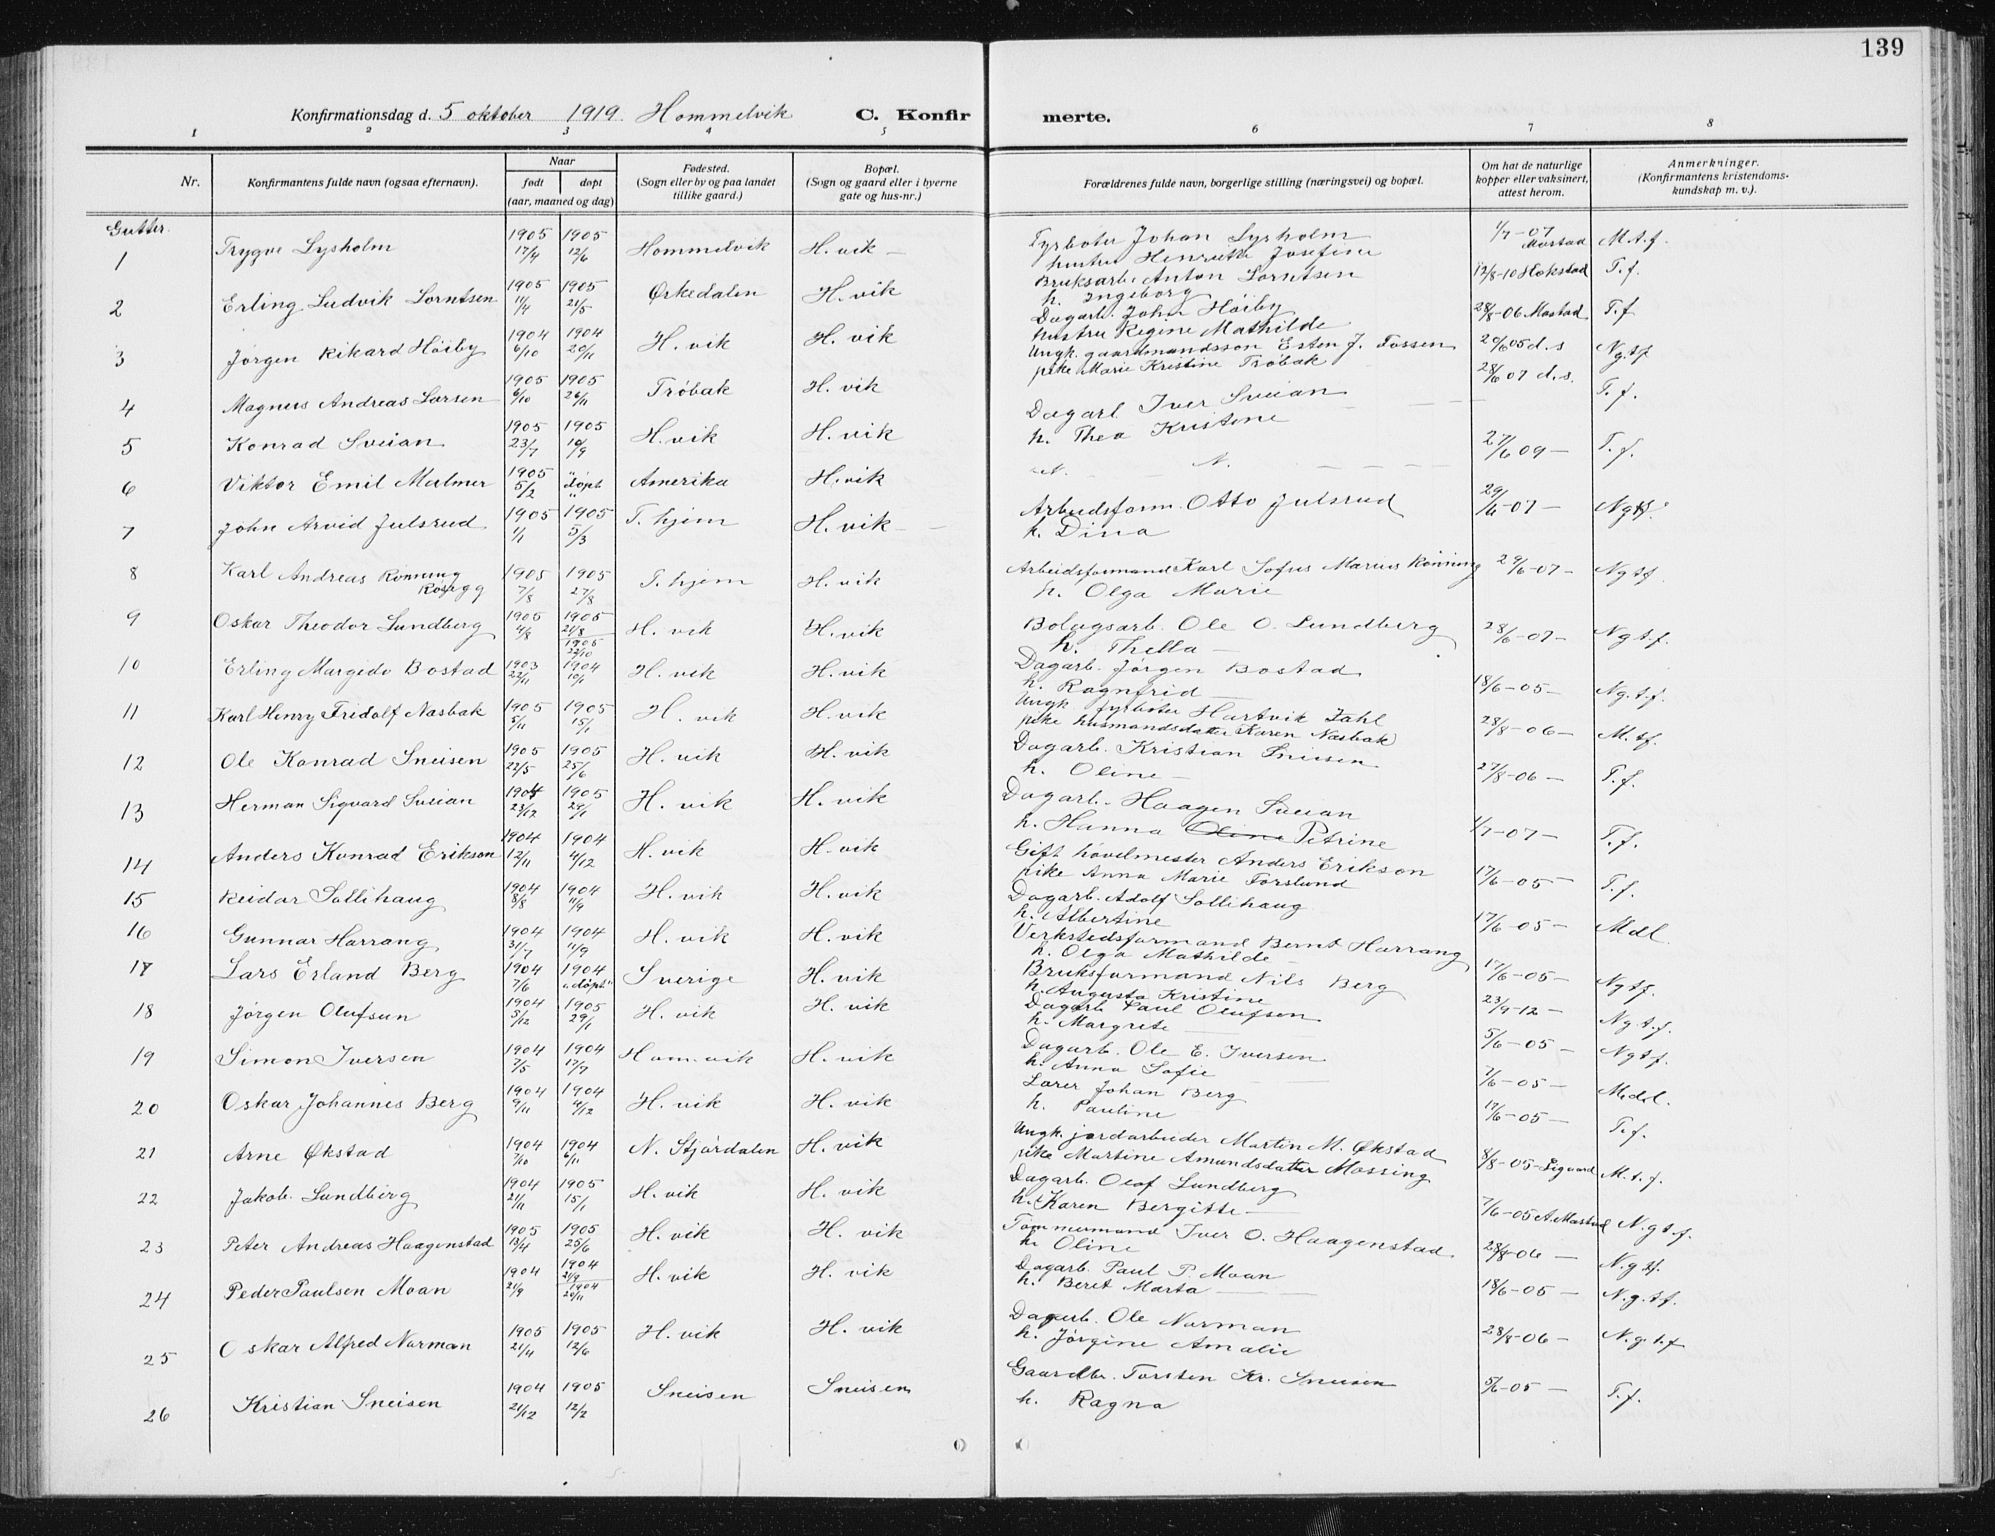 139
Konfirmationsdag d. 5 oktober 1919. Hommelvik C. Konfirmerte.
1 2 3 4 5 6 7 8
Nr.
Konfirmantens fulde navn (ogsaa efternavn).
Naar
født døpt
(aar, maaned og dag)
Fødested.
(Sogn eller by og paa landet
tillike gaard.)
Bopæl.
(Sogn og gaard eller i byerne
gate og hus-nr.)
Forældrenes fulde navn, borgerlige stilling (næringsvei) og bopæl.
Om hat de naturlige
kopper eller vaksinert,
attest herom.
Anmerkninger.
(Konfirmantens kristendoms-
kundskap m. v.).
Gutter.
1 Trygve Lysholm 1905 17/4 1905 12/6 Hommelvik H. vik — Fyrbøter Johan Lysholm hustru Henriette Josefine 1/7-07 Mostad M.t.f.
2 Erling Ludvik Lorntsen 1905 11/4 1905 21/5 Ørkedalen H. vik Bruksarb. Anton Lorntsen h. Ingeborg 12/8-10 Hokstad T.f.
3 Jørgen Rikard Höiby 1904 6/10 1904 20/11 H. vik H. vik Dagarb. John Höiby hustru Regine Mathilde 28/8-06 Mostad T.f
4 Magnus Andreas Larsen 1905 6/10 1905 26/11 Trøbak H. vik Ungk. gaardmandssøn Esten J. Fossen pike Marie Kristine Trøbak 20/6 05 d.s Ng.tf
5 Konrad Sveian 1905 23/7 1905 10/9 H. vik H. vik Dagarb. Iver Sveian h. Thea Kristine 28/6 07 d.s. T.f.
6 Viktor Emil Malmer 1905 5/2 "døpt" Amerika H. vik N. — N. — 27/6 09 — T.f.
7 John Arvid Julsrud 1905 1/1 1905 5/3 T. hjem H. vik — Arbeidsform. Otto Julsrud h. Dina 29/6-07 — Ngtf.
8 Karl Andreas Rønning Rosegg 1905 7/8 1905 27/8 T. hjem H. vik Arbeidsformand Karl Sofus Marius Rønning h. Olga Marie 29/6-07 — Ngtf.
9 Oskar Theodor Lundberg 1905 4/8 1905 21/8 1905 22/10 H. vik H. vik Bolagsarb. Ole O. Lundberg h. Thella — 28/6-07 — Ngt.f.
10 Erling Margido Bostad 1903 22/11 1904 10/1 H. vik H. vik Dagarb. Jørgen Bostad h. Ragnfrid — 18/6-05 — Ng.t.f.
11 Karl Henry Fridolf Nasbak 1905 5/11 1905 15/1 H. vik H. vik Ungk fyrbøter Hartvik Zahl pike husmandsdatter Karen Nasbak 28/8-06 — M.tf.
12 Ole Konrad Sneisen 1905 22/5 1905 25/6 H. vik H. vik Dagarb. Kristian Sneisen h. Oline — 27/8-06 — T.f.
13 Herman Sigvard Sveian 1904 23/12 1905 29/1 H. vik H. vik Dagarb. Haagen Sveian h. Hanna Oline Petrine 1/7-07 — T.f.
14 Anders Konrad Erikson 1904 12/11 1904 4/12 H. vik H. vik Gift hövelmester Anders Erikson pike Anna Marie Forslund 17/6-05 — T.f.
15 Reidar Sollihaug 1904 8/8 1904 11/9 H. vik H. vik Dagarb. Adolf Sollihaug h. Albertine 17/6-05 — Mdl.
16 Gunnar Harrang 1904 31/7 1904 11/9 H. vik H. vik Verkstedsformand Bernt Harrang h. Olga Mathilde — 17/6-05 — Ngtf.
17 Lars Erland Berg 1904 7/6 1904 "døpt" Sverige H. vik Bruksformand Nils Berg h. Augusta Kristine 23/9-12 — Ng.t.f.
18 Jørgen Olufsen 1904 5/12 1905 29/1 H. vik H. vik Dagarb. Paul Olufsen h. Margrete 5/6-05 — Ngtf.
19 Simon Iversen 1904 7/5 1904 17/7 Hom. vik H. vik Dagarb. Ole E. Iversen h. Anna Sofie 7/6-05 — Mdl.
20 Oskar Johannes Berg 1904 9/11 1904 4/12 H. vik H. vik Lærer Johan Berg h. Pauline 17/6-05 — T.f.
21 Arne Økstad 1904 7/10 1904 6/11 N. Stjørdalen H. vik Ungk. jordarbeider Martin M. Økstad pike Martine Amundsdatter Mossing 8/8-05 Sigvard M.t.f.
22 Jakob Lundberg 1904 21/11 1905 15/1 H. vik H. vik Dagarb. Olof Lundberg h. Karen Bergitte — 7/6-05 A. Mostad N.gt.f.
23 Peter Andreas Haagenstad 1905 13/4 1905 25/6 H. vik H. vik Tømmermand Iver O. Haagenstad h. Oline 28/8-06 — N.g tf.
24 Peder Paulsen Moan 1904 21/9 1904 21/9 1904 20/11 H. vik H. vik Dagarb. Paul P. Moan h. Beret Marta — 18/6-05 — N.g.t.f.
25 Oskar Alfred Norman 1905 21/4 1905 12/6 H. vik H. vik Dagarb. Ole Norman h. Jørgine Amalie 28/8-06 — N.gt.f
26 Kristian Sneisen 1904 21/12 1905 12/2 Sneisen Sneisen Gaardbr. Torsten Kr. Sneisen h. Ragna 5/6-05 — T.f.